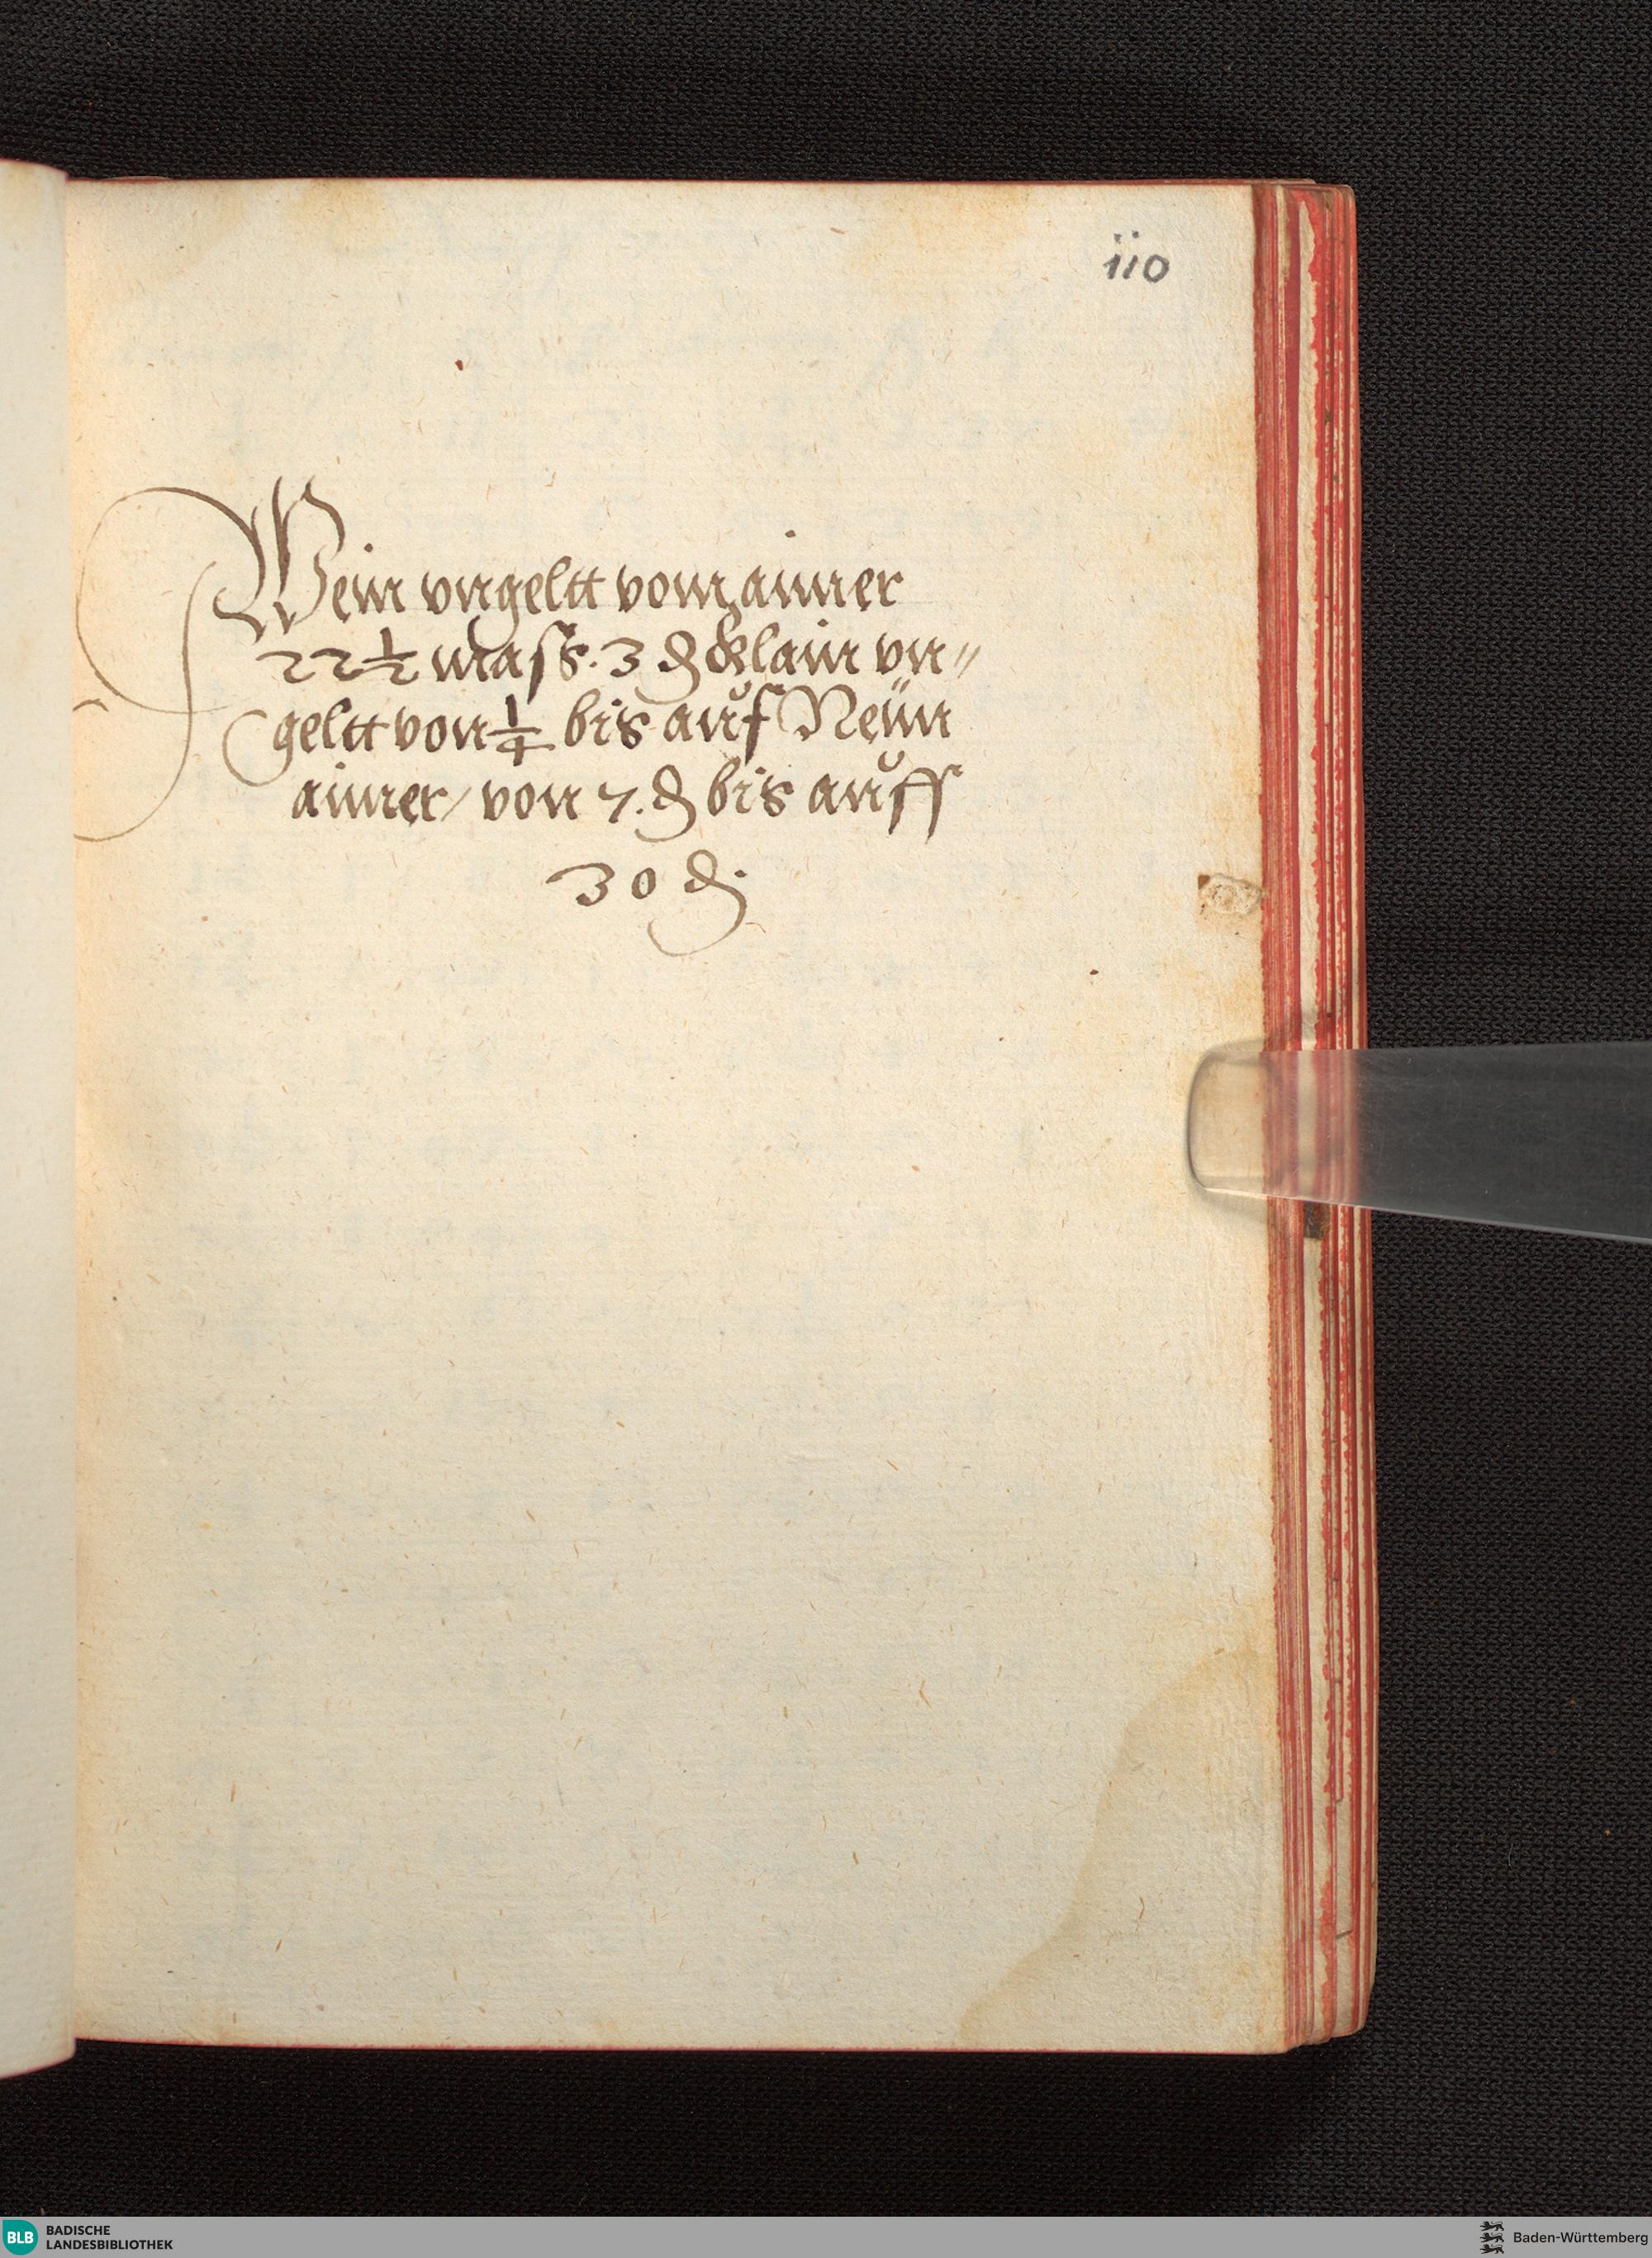 110
Wein vngeltt vom aimer
22 1/2 mass. 3 ₰ klain vn〃
geltt von 1/4 bis auf Neün
aimer / von 7. ₰ bis auff
30 ₰.
BLB BADISCHE
LANDESBIBLIOTHEK
Baden-Württemberg